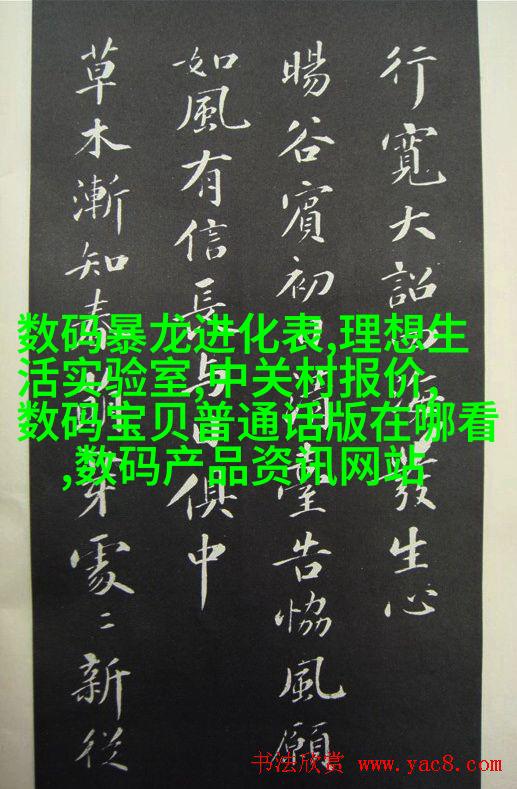 行寬大詔發生心
暘谷賓初日清臺告恊風願
如風有信長與日俱中
草木漸知春萌芽處〻新從
数码暴龙进化表,理想生
活实验室,中关村报价,
数码宝贝普通话版在哪看
,数码产品资讯网站
书法欣赏 www.yac8.com